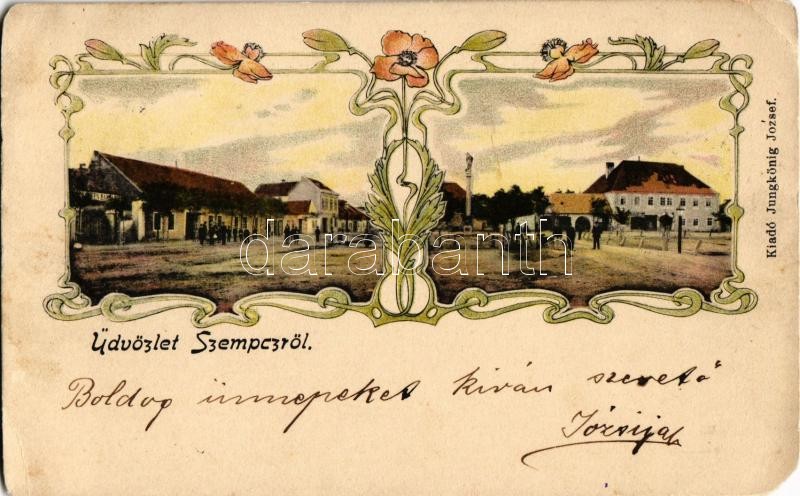 Kiadó Jungkönig József.
darabanth
Üdvözlet Szempczről.
Boldog ünnepeket kíván szerető
Józsija